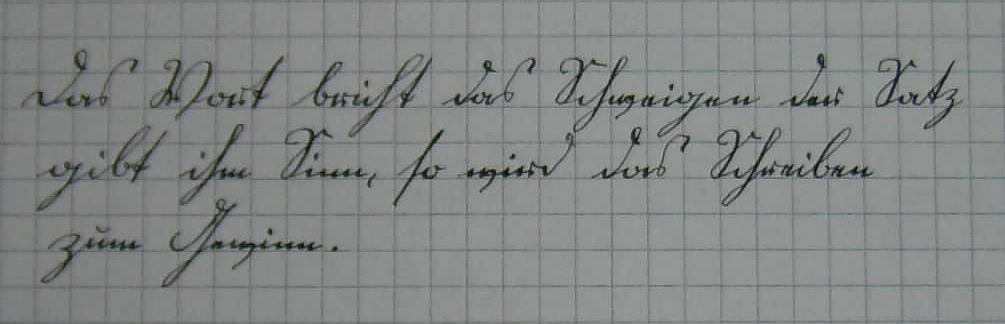 Das Wort bricht das Schweigen der Satz
gibt ihm Sinn, so wird das Schreiben
zum Gewinn.